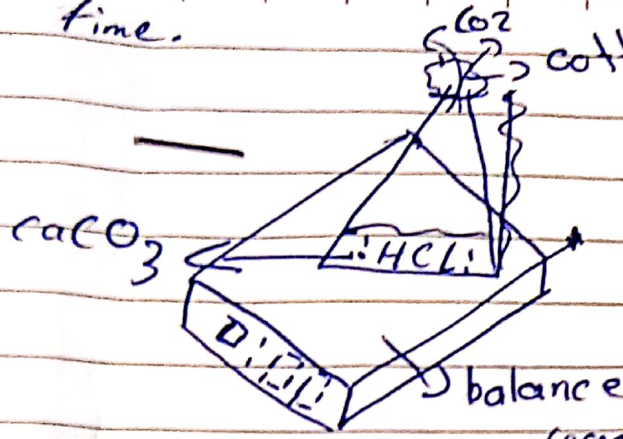 time.
CO2
CaCO3
HCL
balance